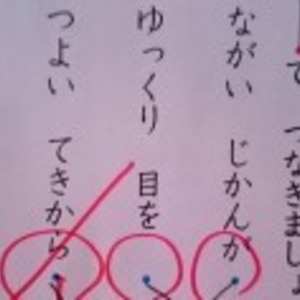 で つなぎましょ
ながい じかんが
ゆっくり 目を
つよい てきから